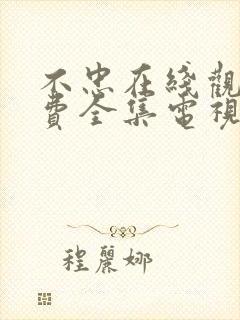 不忠在綫觀
費全集電視
程麗娜